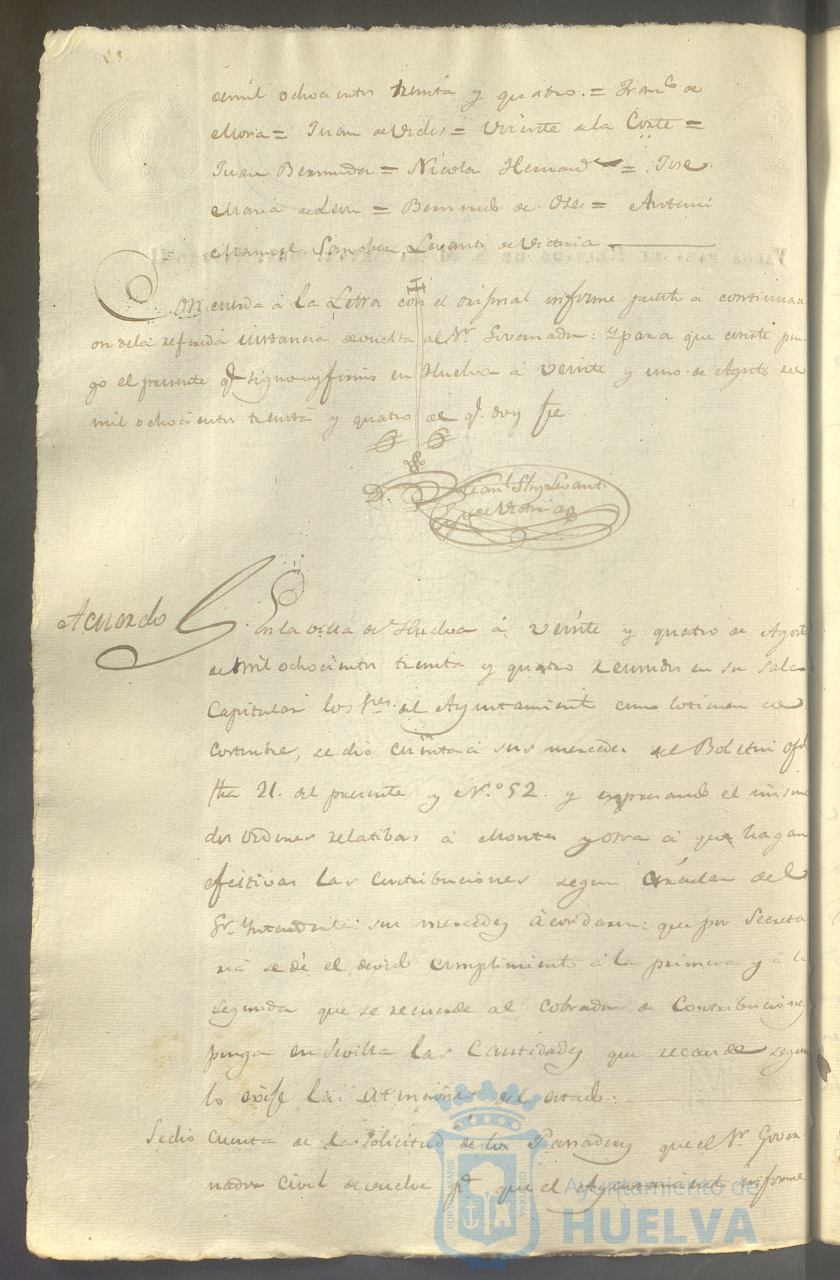 de mil ochocientos treinta y quatro. = Franco de
Moria = Juan de Vides = Vicente de la Corte =
Juan Bermudez = Nicola Hernandz = Jose
Maria de Leon = Bernardo de = Antoni
Manuel Sanchez Levanti de Victoria
Concuerda á la Letra con el original informe puesto á continuaci
on de la referida instancia devuelta al Sr. Governador: Y para que conste pon
go el presente q. signo y firmo en Huelva á veinte y uno de Agosto de
mil ochocientos treinta y quatro de q. doy fe.
Acuerdo
En la villa de Huelva á veinte y quatro de Agosto
de mil ochocientos treinta y quatro reunidos en su sala
Capitular los Sres. del Ayuntamiento como lo tienen de
costumbre, se dió cuenta á sus mercedes del Boletin ofl
fha 21. del presente y N.º 52. y expresando el mismo
dos ordenes relatibas á Montes y otra á que hagan
efectivas las contribuciones segun circular del
Sr. Yntendente: sus mercedes Acordaron: que por Secreta
ria se dé el devido cumplimiento á la primera y á la
segunda que se recuerde al Cobrador de Contribuciones
ponga en Sevilla las Cantidades que recaude segun
lo exije las atenciones del estado.
Se dió cuenta de la Solicitud de los Panaderos que el Sr. Gover
nador Civil devuelve pa. que el Ayuntamiento informe
Ayuntamiento de
HUELVA